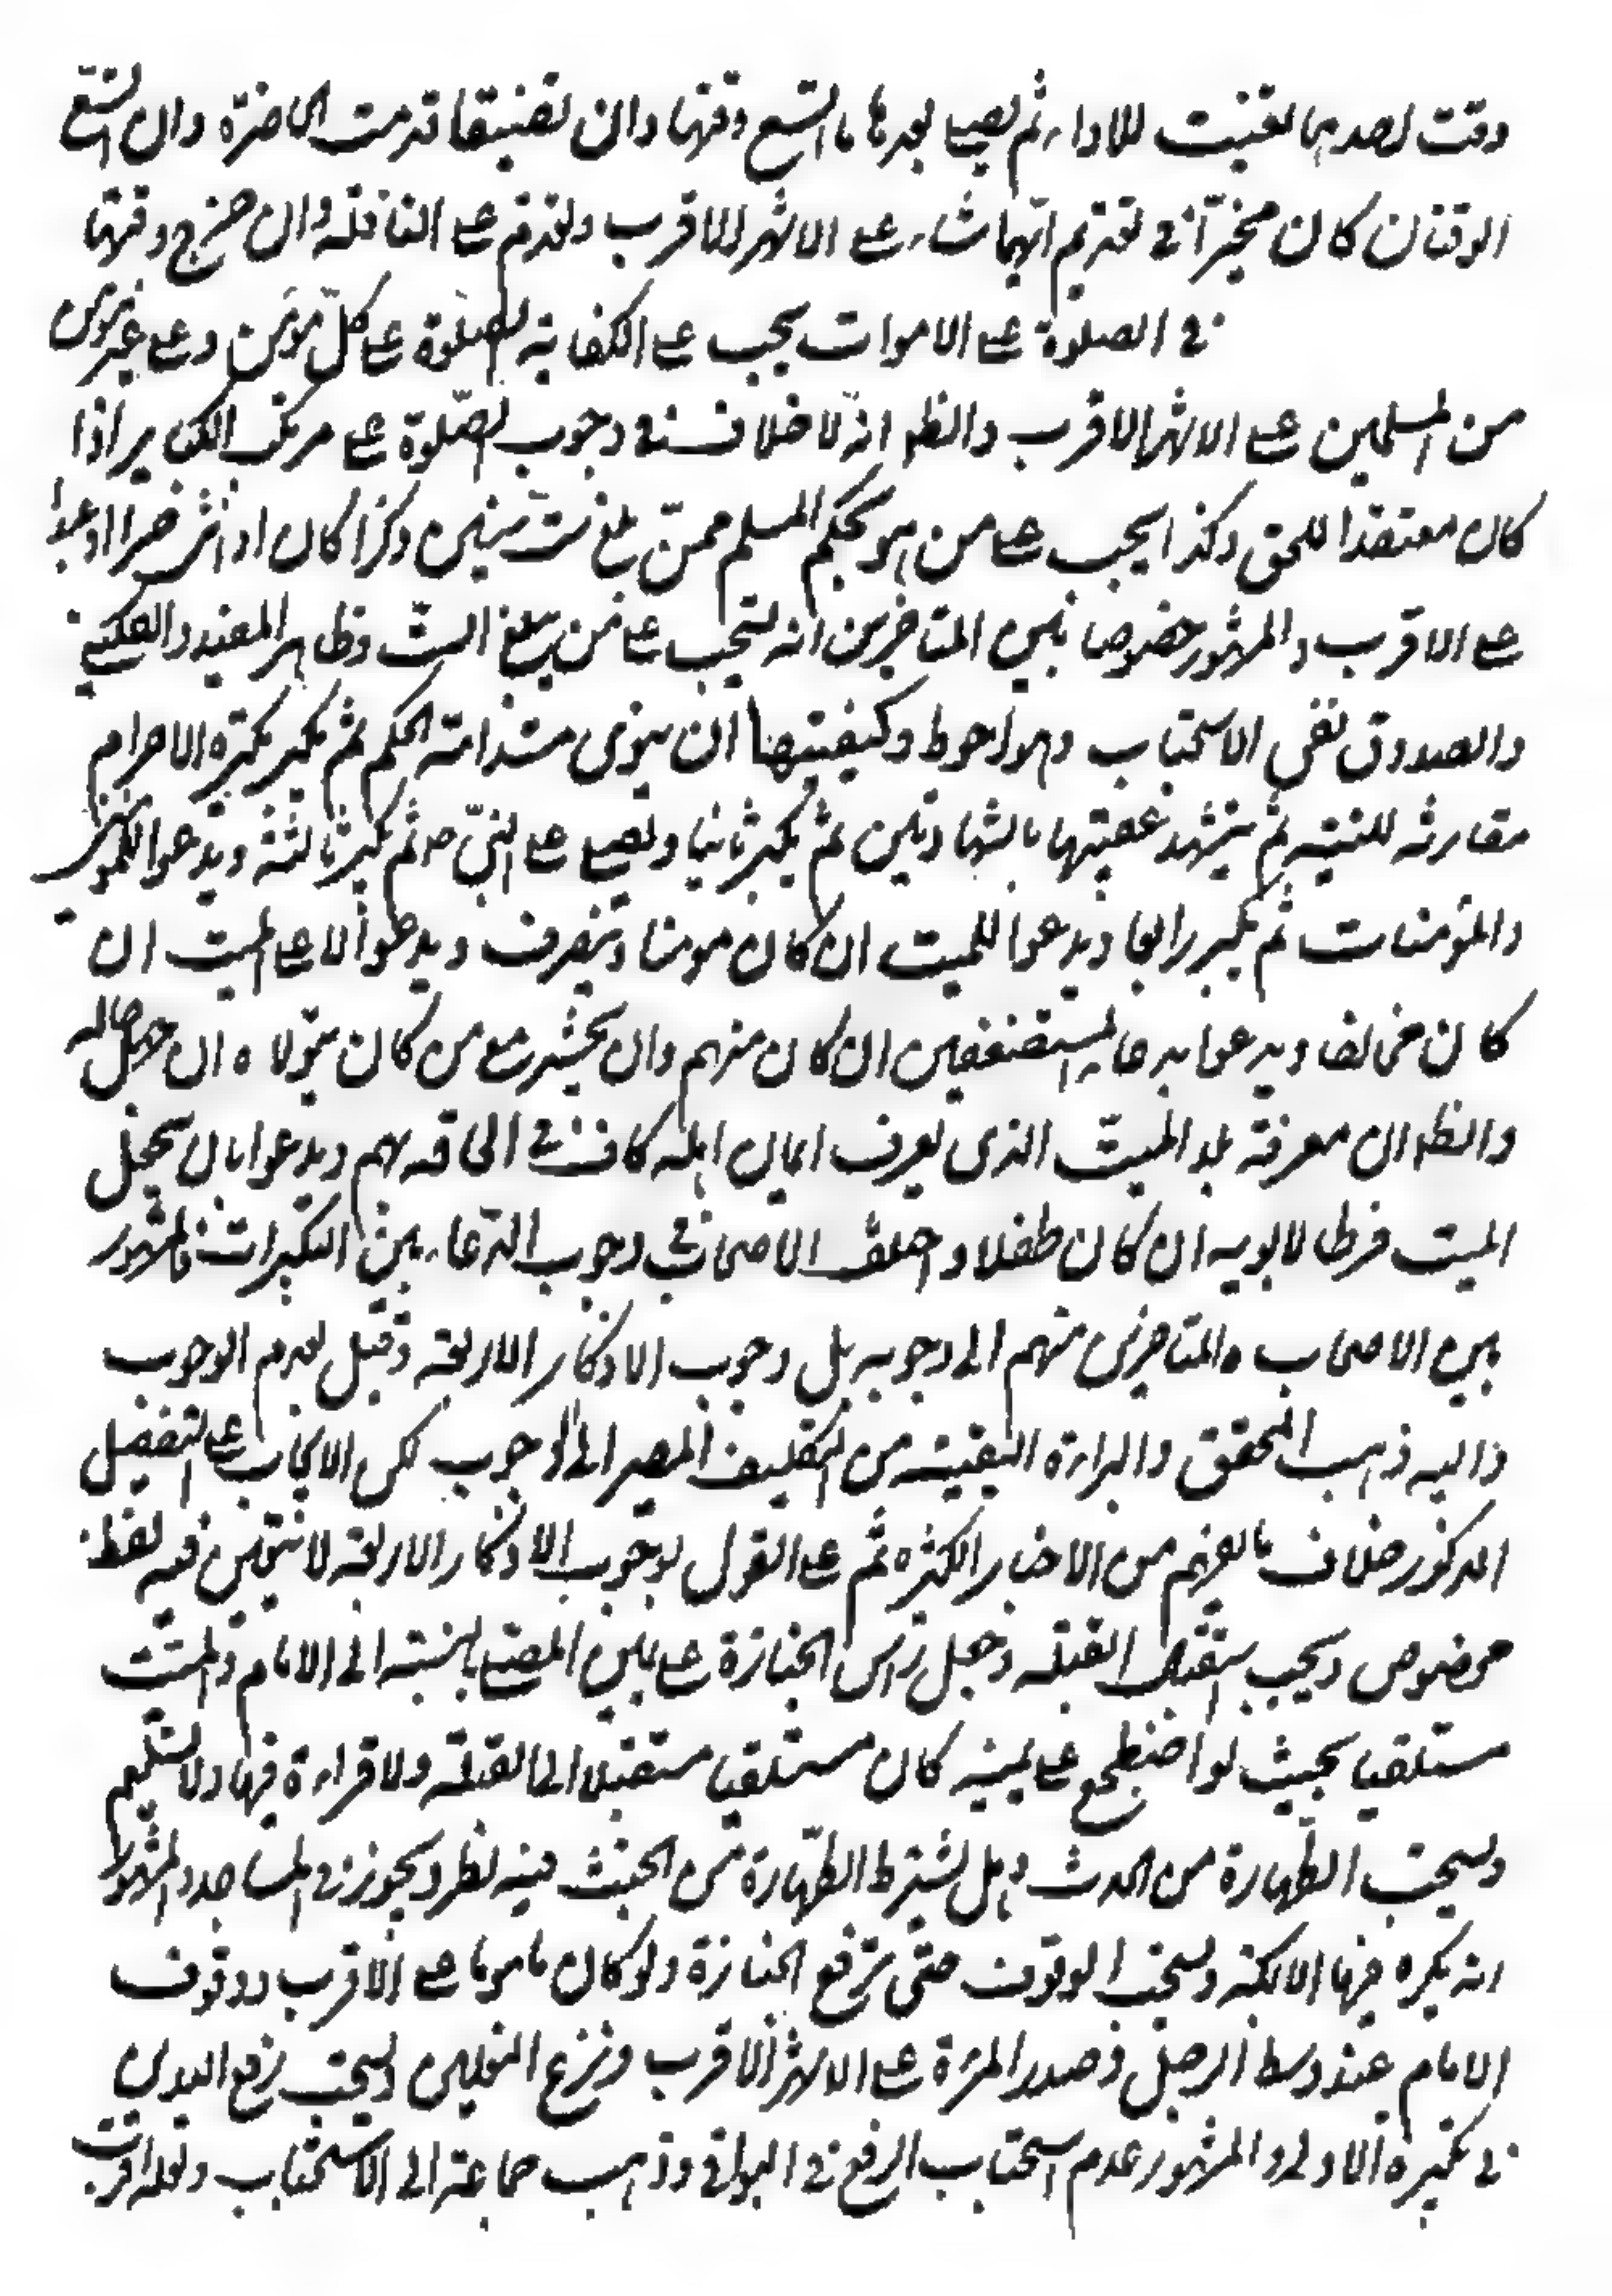 وقت احديهما تعينت للاداء ثم يصلي بعدها ما اتسع وقتها وان تضيقا قدمت الحاضرة وان اتسع
الوقتان كان مخيرا في تقديم ايهما شاء على الاشهر الاقرب وتقدم على النافلة وان خرج وقتها
في الصلوة على الاموات يجب على الكفاية الصلوة على كل مؤمن وعلى غير مؤمن
من المسلمين على الاشهر الاقرب والظ انه لا خلاف في وجوب الصلوة على مرتكب الكباير اذا
كان معتقدا للحق وكذا يجب على من هو بحكم المسلم ممن بلغ ست سنين ذكرا كان او انثى حرا او عبدا
على الاقرب والمشهور خصوصا بين المتاخرين انه يستحب على من لم يبلغ الست وظاهر المفيد والكليني
والصدوق نفي الاستحباب وهو احوط وكيفيتها ان ينوي مستدامة الحكم ثم يكبر تكبيرة الاحرام
مقارنة للنية ثم يتشهد عقيبها بالشهادتين ثم يكبر ثانيا ويصلي على النبي ص ثم يكبر ثالثة ويدعوا للمؤمنين
والمؤمنات ثم يكبر رابعا ويدعوا للميت ان كان مومنا وينصرف ويدعوا على الميت ان
كان مخالفا ويدعوا بدعاء المستضعفين ان كان منهم وان يحشره مع من كان يتولاه ان جهل حاله
والظ ان معرفة بلد الميت الذي يعرف ايمان اهله كاف في الحاقه بهم ويدعوا بان يجعل
الميت فرطا لابويه ان كان طفلا واختلف الاصحاب في وجوب الدعاء بين التكبيرات فالمشهور
بين الاصحاب والمتاخرين منهم الى وجوبه بل وجوب الاذكار الاربعة وقيل بعدم الوجوب
واليه ذهب المحقق والبراءة اليقينية من التكليف المصير الى الوجوب لكن الايجاب على التفصيل
المذكور خلاف ما يفهم من الاخبار الكثيرة ثم على القول بوجوب الاذكار الاربعة لا يتعين فيه لفظ
مخصوص ويجب استقبال القبلة وجعل راس الجنازة على يمين المصلي بالنسبة الى الامام والميت
مستلقيا بحيث لو اضطجع على يمينه كان مستقبلا الى القبلة ولا قراءة فيها ولا تسليم
ويستحب الطهارة من الحدث وهل يشترط الطهارة من الخبث فيه نظر ويجوز في المساجد والمشهور
انه يكره فيها الا بمكة ويستحب الوقوف حتى ترفع الجنازة ولو كان ماموما على الاقرب ووقوف
الامام عند وسط الرجل وصدر المرءة على الاشهر الاقرب ونزع النعلين ويستحب رفع اليدين
في تكبيرة الاولى والمشهور عدم استحباب الرفع في البواقي وذهب جماعة الى الاستحباب ولعله اقرب